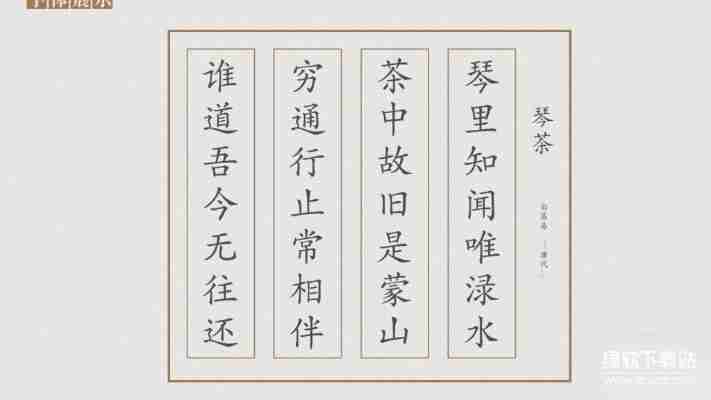 琴茶
白居易 [唐代]
琴里知闻唯渌水
茶中故旧是蒙山
穷通行止常相伴
谁道吾今无往还
绿软下载站